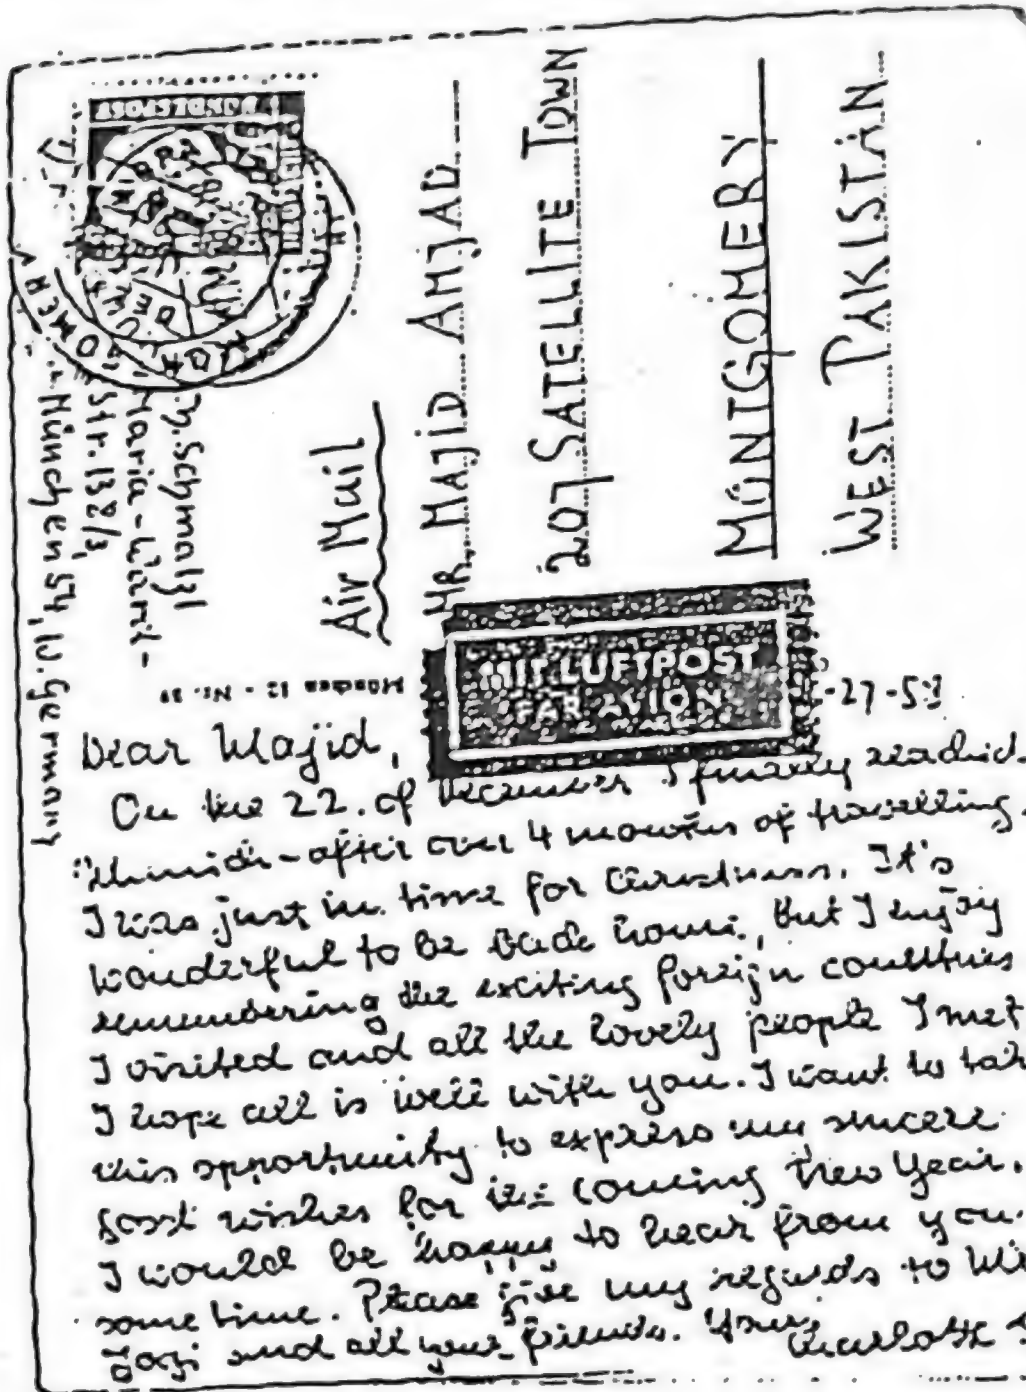 Schmalzl
Maria-Ward-
Str. 132/3,
München 54, W. Germany
Air Mail
MR. MAJID AMJAD
207 SATELLITE TOWN
MÖNTGOMERY
WEST PAKISTAN
MIT LUFTPOST
PAR AVION
Dear Majid,
On the 22. of December I finally reached
Munich - after over 4 months of travelling.
I was just in time for Christmas. It's
wonderful to be back home, but I enjoy
remembering the exciting foreign countries
I visited and all the lovely people I met
I hope all is well with you. I want to
this opportunity to express my sincere
good wishes for the coming New Year.
I would be happy to hear from you
some time. Please give my regards to
and all your friends. Yours,
Charlotte